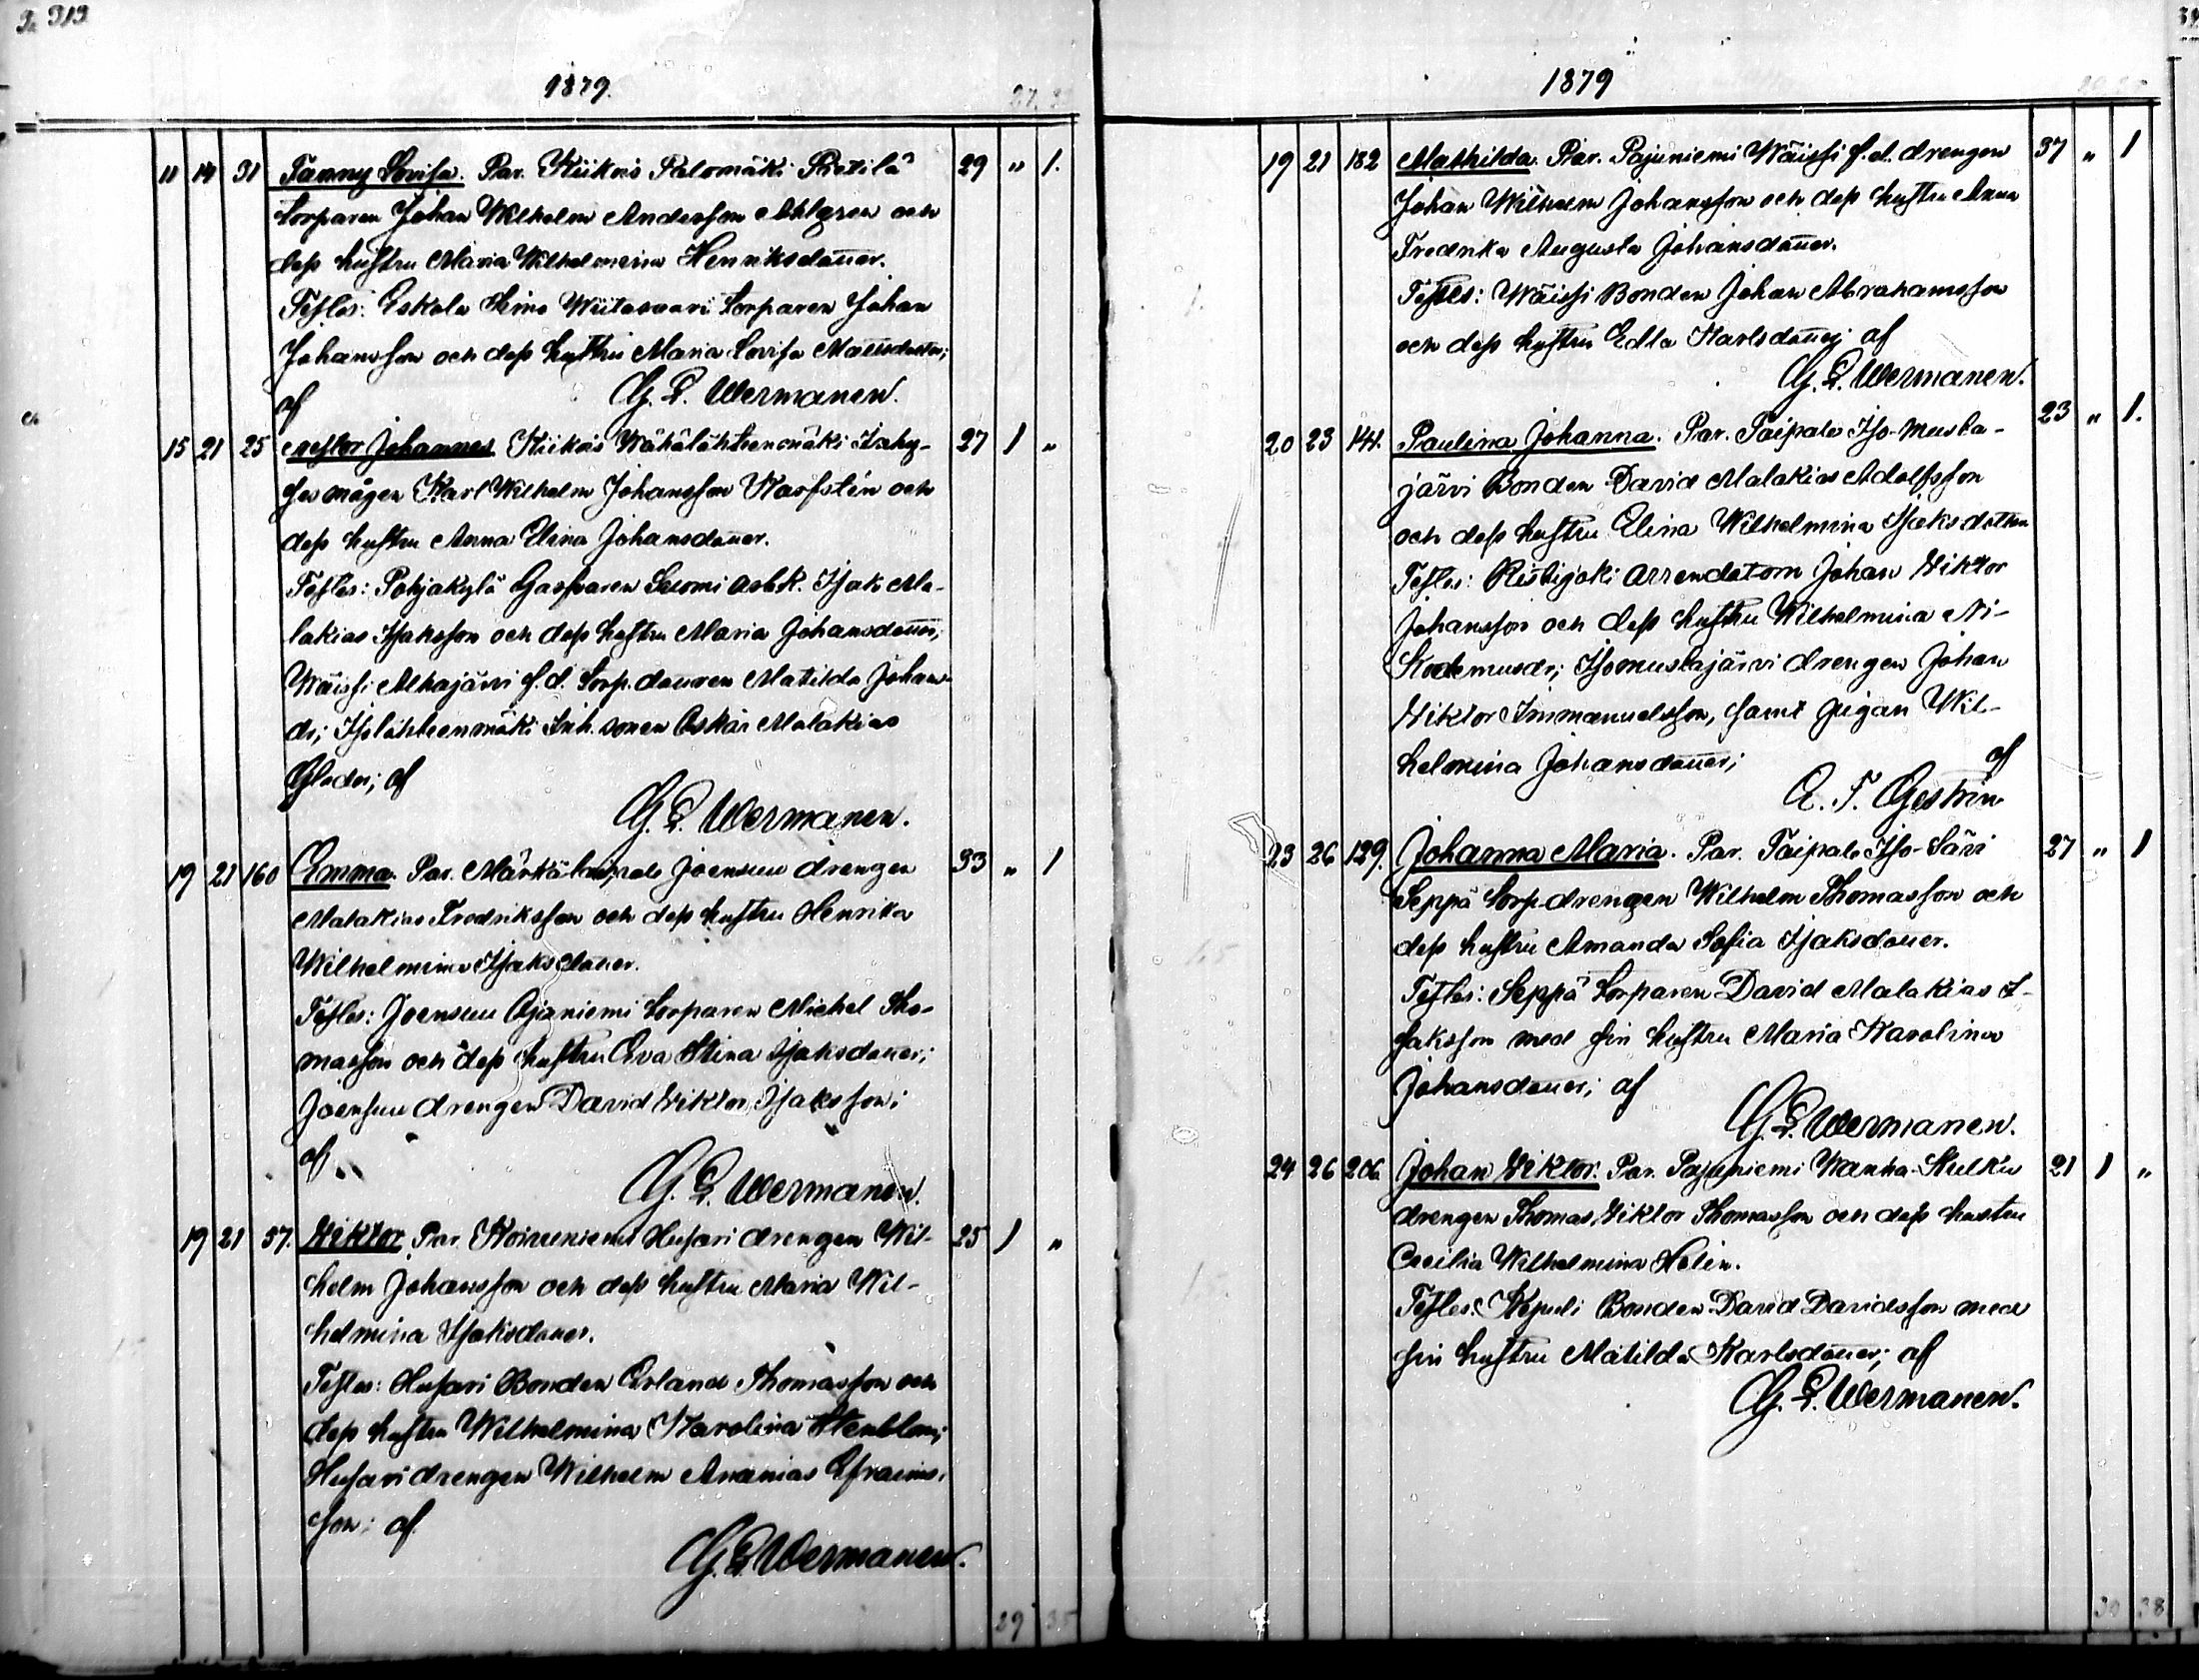 313
1879.
11 14 31 Fanny Lovisa. Par. Kiikois Palomäki Pietilä 29 " 1.
torparen Johan Wilhelm Andersson Ahlgren och
dess hustru Maria Wilhelmina Henriksdotter.
Testes: Eskola torparen Johan
Johansson och dess hustru Maria Lovisa
af G. L. Wermanen.
15 21 25 Nestor Johannes Kiikois Wähälähteenmäki Inhy- 27 1 "
ses mågen Karl Wilhelm Johansson och
dess hustru Anna Elina Johansdotter.
Testes: Pohjakylä Suomi Isak Ma-
lakias Isaksson och dess hustru Maria Johansdotter;
Wäissi Alhajärvi f.d. Matilda Johans-
dr; Isolähteenmäki Inh. sonen Oskar Malakias
af
G. L. Wermanen.
19 21 160 Emma. Par. Joensuu drengen 33 " 1
Malakias Fredriksson och dess hustru Henrika
Wilhelmina Isaksdotter.
Testes: Joensuu Ojaniemi torparen Michel Tho-
masson och dess hustru Eva Stina Isaksdotter;
Joensuu drengen David Viktor Isaksson;
af
G. L. Wermanen.
19 21 57. Viktor. Par. Koivuniemi Husari drengen Wil- 25 1 "
helm Johansson och dess hustru Maria Wil-
helmina Isaksdotter.
Testes: Husari Bonden Erland Thomasson och
dess hustru Wilhelmina Karolina Stenblom;
Husari drengen Wilhelm Ananias Efraims-
son; af
G. L. Wermanen.
29 35
1879
19 21 182 Mathilda. Par. Pajuniemi Wäissi f.d. drengen 37 " 1
Johan Wilhelm Johansson och dess hustru Anna
Fredrika Augusta Johansdotter.
Testes: Wäissi Bonden Johan Abrahamsson
och dess hustru Edla Karlsdotter; af
G. L. Wermanen.
20 23 141. Paulina Johanna. Par. Taipale Iso-Musta- 23 " 1.
järvi Bonden David Malakias Adolfsson
och dess hustru Elina Wilhelmina Isaksdotter
Testes: Ristijoki Arrendatorn Johan Viktor
Johansson och dess hustru Wilhelmina Ni-
kodemusdr; Isomustajärvi drengen Johan
Viktor Immanuelsson, samt pigan Wil-
helmina Johansdotter; af
A. F. Gestrin
23 26 129. Johanna Maria. Par. Taipale Iso-Säri 27 " 1
Seppä torp.drengen Wilhelm Thomasson och
dess hustru Amanda Sofia Isaksdotter.
Testes: Seppä torparen David Malakias I-
saksson med sin hustru Maria Karolina
Johansdotter; af
G. L. Wermanen.
24 26 206 Johan Viktor. Par. Pajuniemi Wanha-Kulku 21 1 "
drengen Thomas Viktor Thomasson och dess hustru
Cecilia Wilhelmina Helin.
Testes: Bonden David Davidsson med
sin hustru Matilda Karlsdotter; af
G. L. Wermanen.
30 38